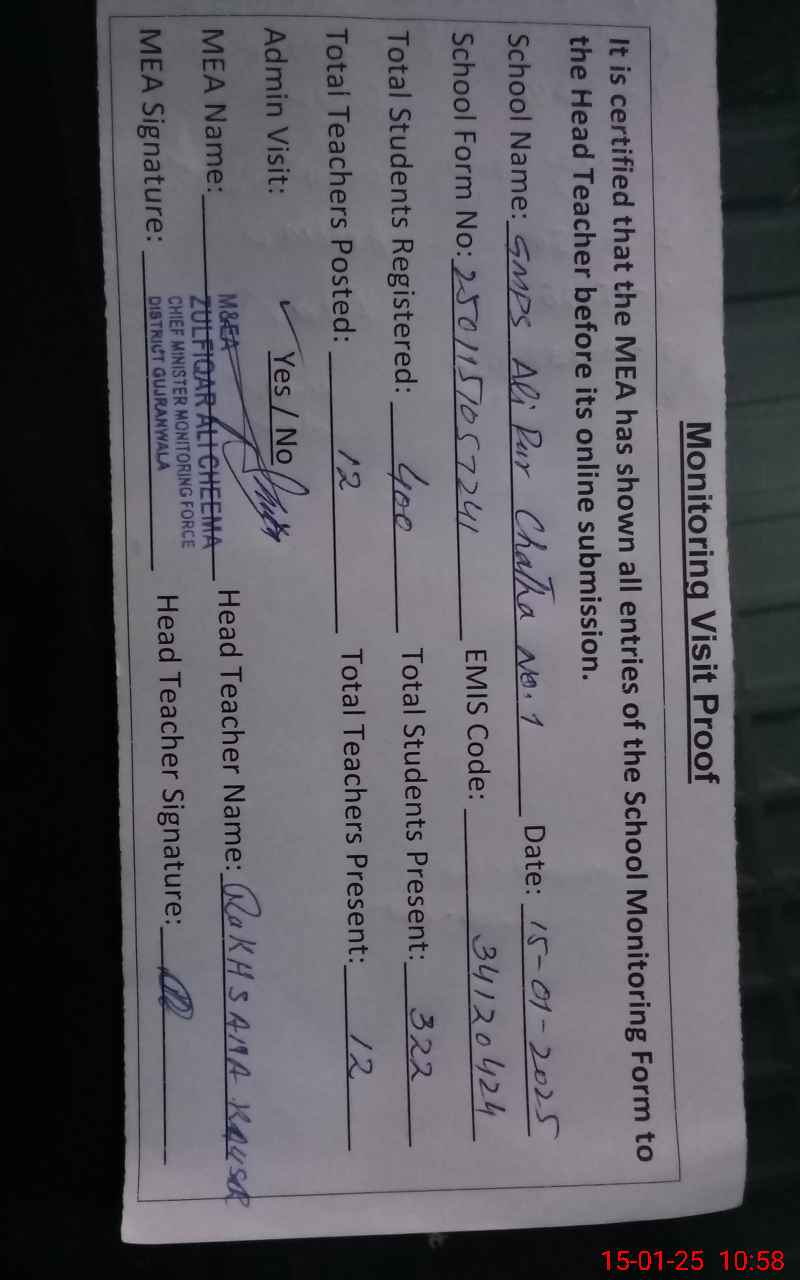 Monitoring Visit Proof
It is certified that the MEA has shown all entries of the School Monitoring Form to
the Head Teacher before its online submission.
School Name: GMPS Ali Pur Chatha No.1 Date: 15-01-2025
School Form No: 2501151057241 EMIS Code: 34120424
Total Students Registered: 400 Total Students Present: 322
Total Teachers Posted: 12 Total Teachers Present: 12
Admin Visit: ✓ Yes / No
MEA Name: Head Teacher Name: RuKHSANA KAUSAR
MEA Signature: Head Teacher Signature:
M&EA
ZULFIQAR ALI CHEEMA
CHIEF MINISTER MONITORING FORCE
DISTRICT GUJRANWALA
15-01-25 10:58